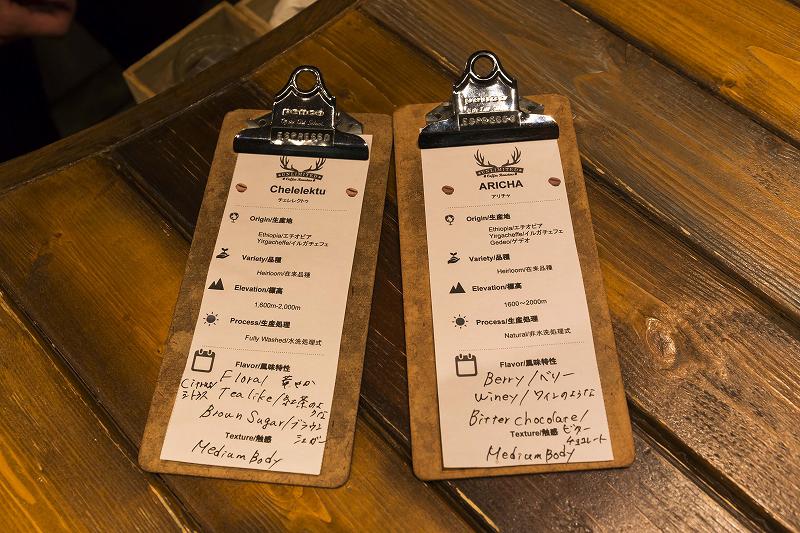 ESPRESSO
UNLIMITED
Coffee Roasters
Chelelektu
チェレレクトゥ
Origin/生産地
Ethiopia/エチオピア
Yirgacheffe/イルガチェフェ
Variety/品種
Heirloom/在来品種
Elevation/標高
1,600m-2,000m
Process/生産処理
Fully Washed/水洗処理式
Flavor/風味特性
Floral
Citrus/シトラス
Tea like/紅茶のような
Brown Sugar/ブラウンシュガー
Texture/触感
Medium Body
ESPRESSO
UNLIMITED
Coffee Roasters
ARICHA
アリチャ
Origin/生産地
Ethiopia/エチオピア
Yirgacheffe/イルガチェフェ
Gedeo/ゲデオ
Variety/品種
Heirloom/在来品種
Elevation/標高
1600～2000m
Process/生産処理
Natural/非水洗処理式
Flavor/風味特性
Berry/ベリー
Winey/ワインのような
Bitter chocolate/ビターチョコレート
Texture/触感
Medium Body